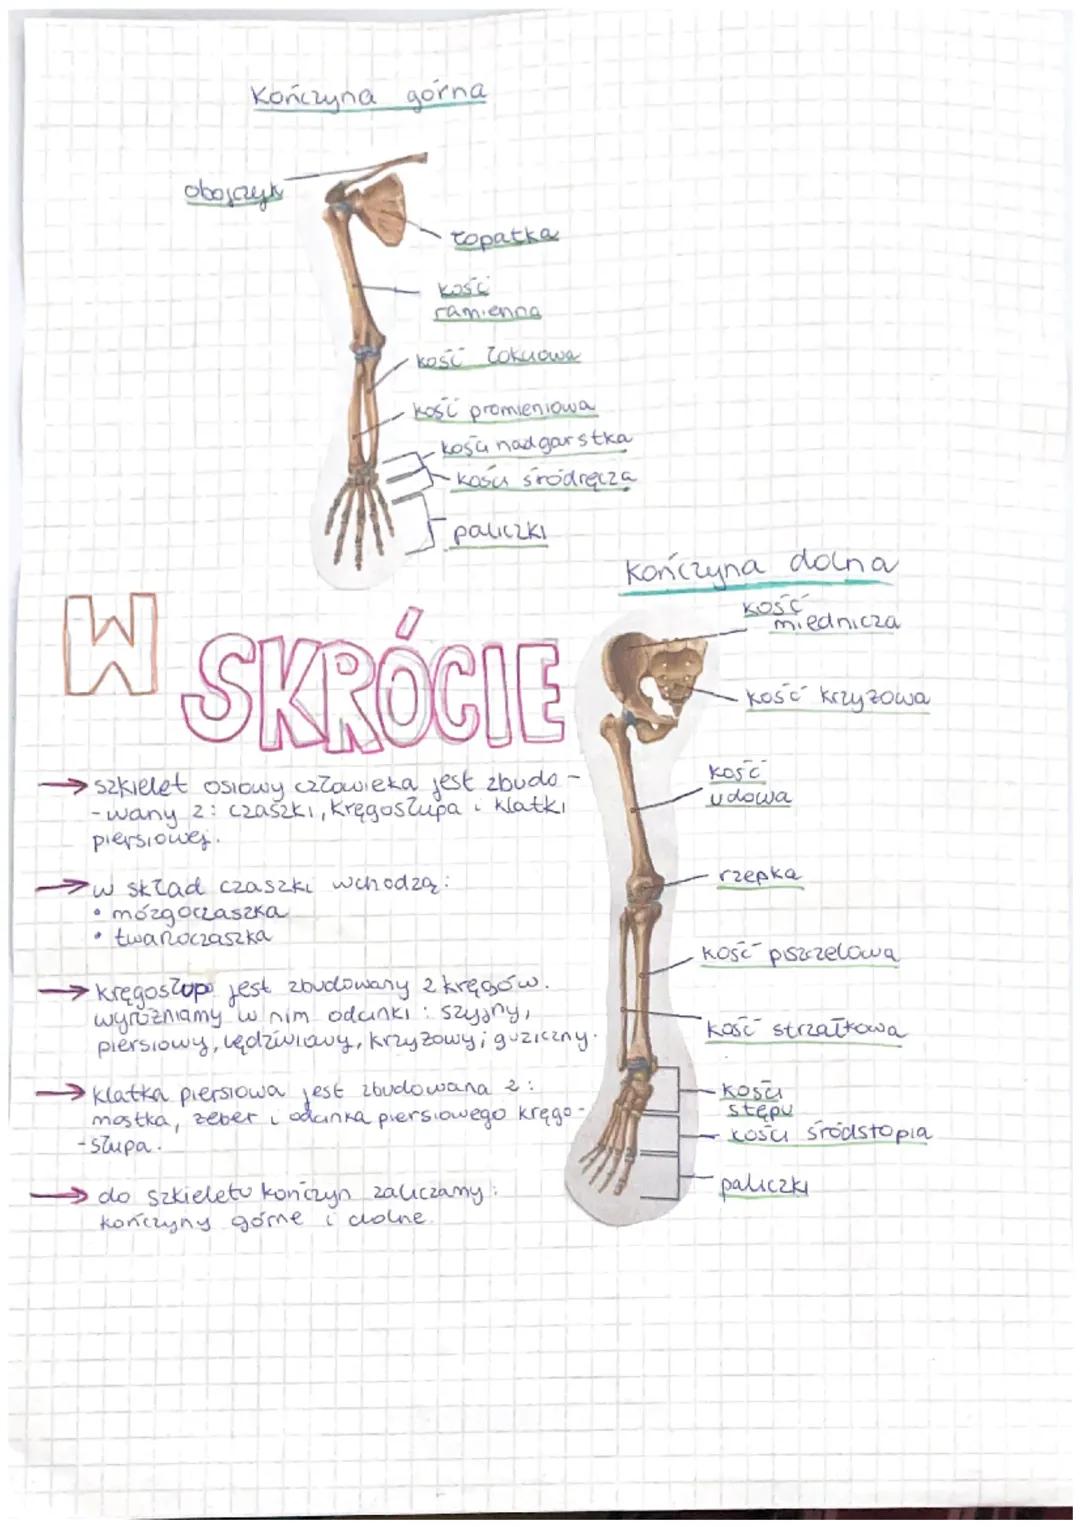 Kończyna górna
obojczyk
łopatka
kość
ramienna
kość łokciowa
kość promieniowa
kości nadgarstka
kości śródręcza
paliczki
Kończyna dolna
kość
miednicza
kość krzyżowa
kość
udowa
rzepka
kość piszczelowa
kość strzałkowa
kości
stępu
kości śródstopia
paliczki
W SKRÓCIE
→ szkielet osiowy człowieka jest zbudo-
-wany z: czaszki, kręgosłupa i klatki
piersiowej.
→ w skład czaszki wchodzą:
• mózgoczaszka
• twarzoczaszka
→ kręgosłup jest zbudowany z kręgów.
wyróżniamy w nim odcinki: szyjny,
piersiowy, lędźwiowy, krzyżowy i guziczny.
→ klatka piersiowa jest zbudowana z:
mostka, żeber i odcinka piersiowego kręgo-
-słupa.
→ do szkieletu kończyn zaliczamy:
kończyny górne i dolne.